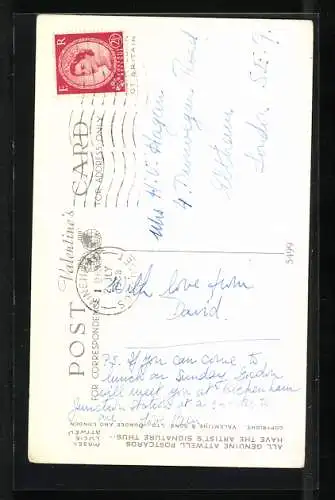 POST CARD
Valentine's
FOR CORRESPONDENCE
FOR ADDRESS ONLY
E R
2½
JLY
Mrs H.V. Hagon
4 Road
Eltham
London S.E.9.
With love from
David.
P.S. If you can come to
lunch on Sunday, Gordon
will meet you at Beckenham
Junction Station at a quarter to
one
5499
ALL GENUINE ATTWELL POSTCARDS
HAVE THE ARTIST'S SIGNATURE THUS:-
MABEL
LUCIE
ATTWELL
COPYRIGHT VALENTINE & SONS LTD., DUNDEE AND LONDON